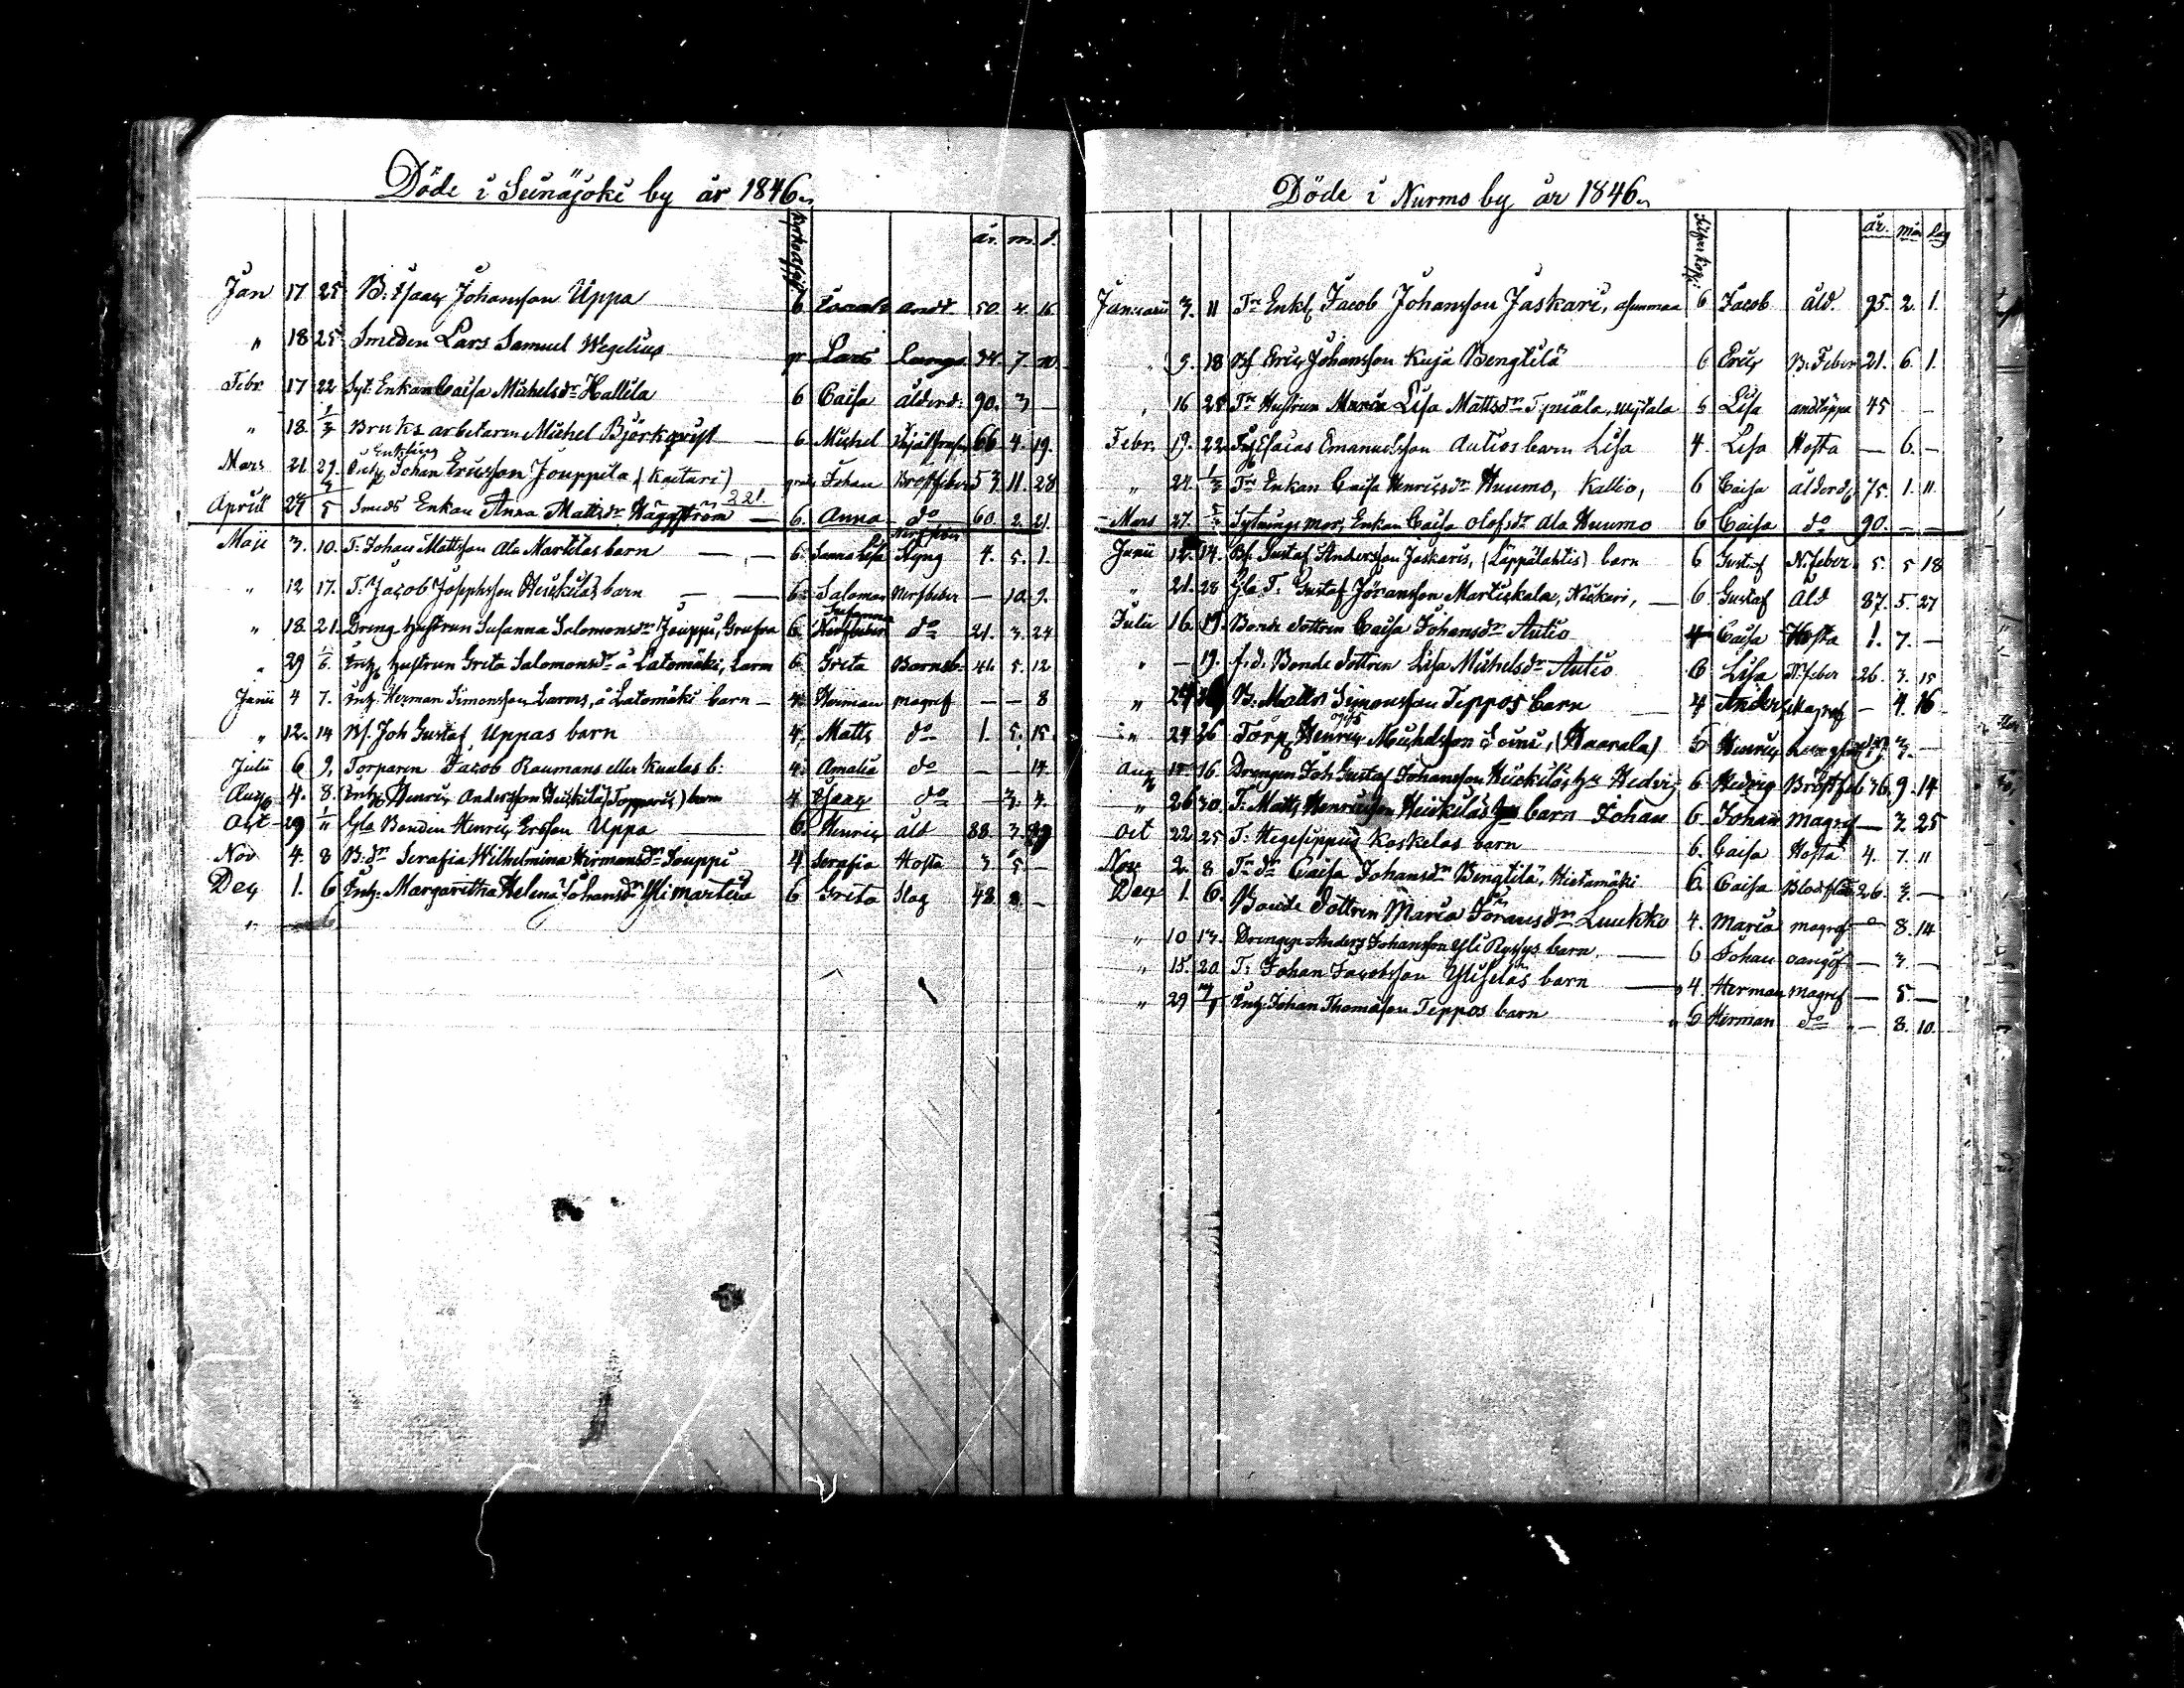 Döde i Seinäjoki by år 1846.
år. m. d.
Jan 17 25 B. Isaac Johansson Uppa 6 Isaac andt. 50. 4. 16
" 18 25 Smeden Lars Samuel Wegelius gr Lars lungs 7.
Febr. 17 22 Syt. Enkan Caisa Michelsdr Hallila 6 Caisa ålderd. 90. 3 —
" 18. 1/3 Bruks arbetaren Michel Björkqvist — 6. Michel 66 4. 19.
Enklingen
Mars 21. 29. Johan Ericsson Jouppila (Kaitari) Johan Bröstfeber 53. 11. 28
221.
April 24 Smeds Enkan Anna Mattsdr Häggström — 6. Anna do 60. 2. 21.
Nerffeber
Maji 3. 10. T. Johan Mattsson Ala Martilas barn — — 6. Sanna Lisa Slag 4. 5. 1.
" 12 17. T. Jacob Josephsson Heickiläs barn — — 6. Salomon Nerffeber — 10. 9.
Susanna
" 18. 21. Dreng hustrun Susanna Salomonsdr Jouppi, 6. do 21. 3. 24
" 29 1/6. Inh. hustrun Greta Salomonsdr å Latomäki, Larm 6. Greta Barnsb. 41. 5. 12
Junii 4 7. Inh. Herman Simonsson Larms, å Latomäki barn — 4. Herman magref — — 8
" 12. 14 Bs. Joh Gustaf Uppas barn 4. Matts do 1. 5. 15
Julii 6 9. Torparen Jacob Raumans eller Kualas b. 4. Amalia do — — 14
Aug. 4. 8. Inh. Henric Andersson Heickilä (Topparis) barn 4 Isaac do — 3. 4.
Oct 29 1/11 Gla Bonden Henric Ersson Uppa — 6. Henric åld 88. 3. 29
Nov 4. 8 B. dr Serafia Wilhelmina Hermansdr Jouppi 4 Serafia Hosta 3 5. —
Dec 1. 6 Inh. Margaretha Helena Johansdr Yli martila 6 Greta Slag 48. —
"
Döde i Nurmo by år 1846.
år. mån dag
Januarii 3. 11 Trp Enkl. Jacob Johansson Jaskari, asunmaa 6 Jacob åld. 95. 2. 1.
" 9. 18 Bs Eric Johansson Kuja Bengtilä 6 Eric N. Feber 21. 6. 1.
" 16 25 Trp Hustrun Maria Lisa Mattsdr 6 Lisa andtäppa 45 — —
Febr. 19. 22 Esaias Emanuelsson Autios barn Lisa 4. Lisa Hosta — 6. —
" 24. 1/3 Trp Enkan Caisa Henricsdr Huumo, Kallio, 6 Caisa ålderd. 75. 1. 11
Mars 27. 5/4 Sytnings mor, Enkan Caisa Olofsdr Ala Huumo 6 Caisa do 90. — —
Junii 14. Bs. Gustaf Andersson Jaskaris, (Läppälahtis) barn 6 Gustaf N. feber 5. 5 18
" 21. 28 Gla T. Gustaf Jöransson Martiskala, Niskari, — 6 Gustaf Åld 87. 5. 27
Julii 16. 19. Bonde dottren Caisa Johansdr Autio 4 Caisa Hosta 1. 7. —
" — 19. f.d. Bonde dottren Lisa Michelsdr Autio 6 Lisa N. feber 26. 3. 15
" 24 B. Matts Simonsson Teppos barn — 4 Anders Magref — 4. 16
" 24 26 Torp. Henric Michelsson Soini, (Haarala) 6 Henric 3. —
Aug. 15. 16. Drengen Joh Gustaf Johansson Heickiläs hu Hedvig 6. Hedvig Bröstfeb 36. 9. 14
" 26 30. T. Matts Henricsson Heickiläs barn Johan 6. Johan Magref — 3. 25
Oct 22. 25 T. Hegesippus Koskelas barn 6. Caisa Hosta 4. 7. 11
Nov. 2. 8 Trp dr Caisa Johansdr Bengtilä, Hietamäki 6. Caisa 26. 3. —
Dec 1. 6. Bonde dottren Maria Göransdr Luukko 4. Maria magref — 8. 14
" 10 13. Drengen Anders Johansson Yli Ryssys barn. — 6 Johan oangif — 3. —
" 15. 20. T. Johan Jacobsson Ylisoläs barn — 4. Herman magref — 5. —
" 29 Inh. Johan Thomasson Teppos barn 6 Herman do — 8. 10.